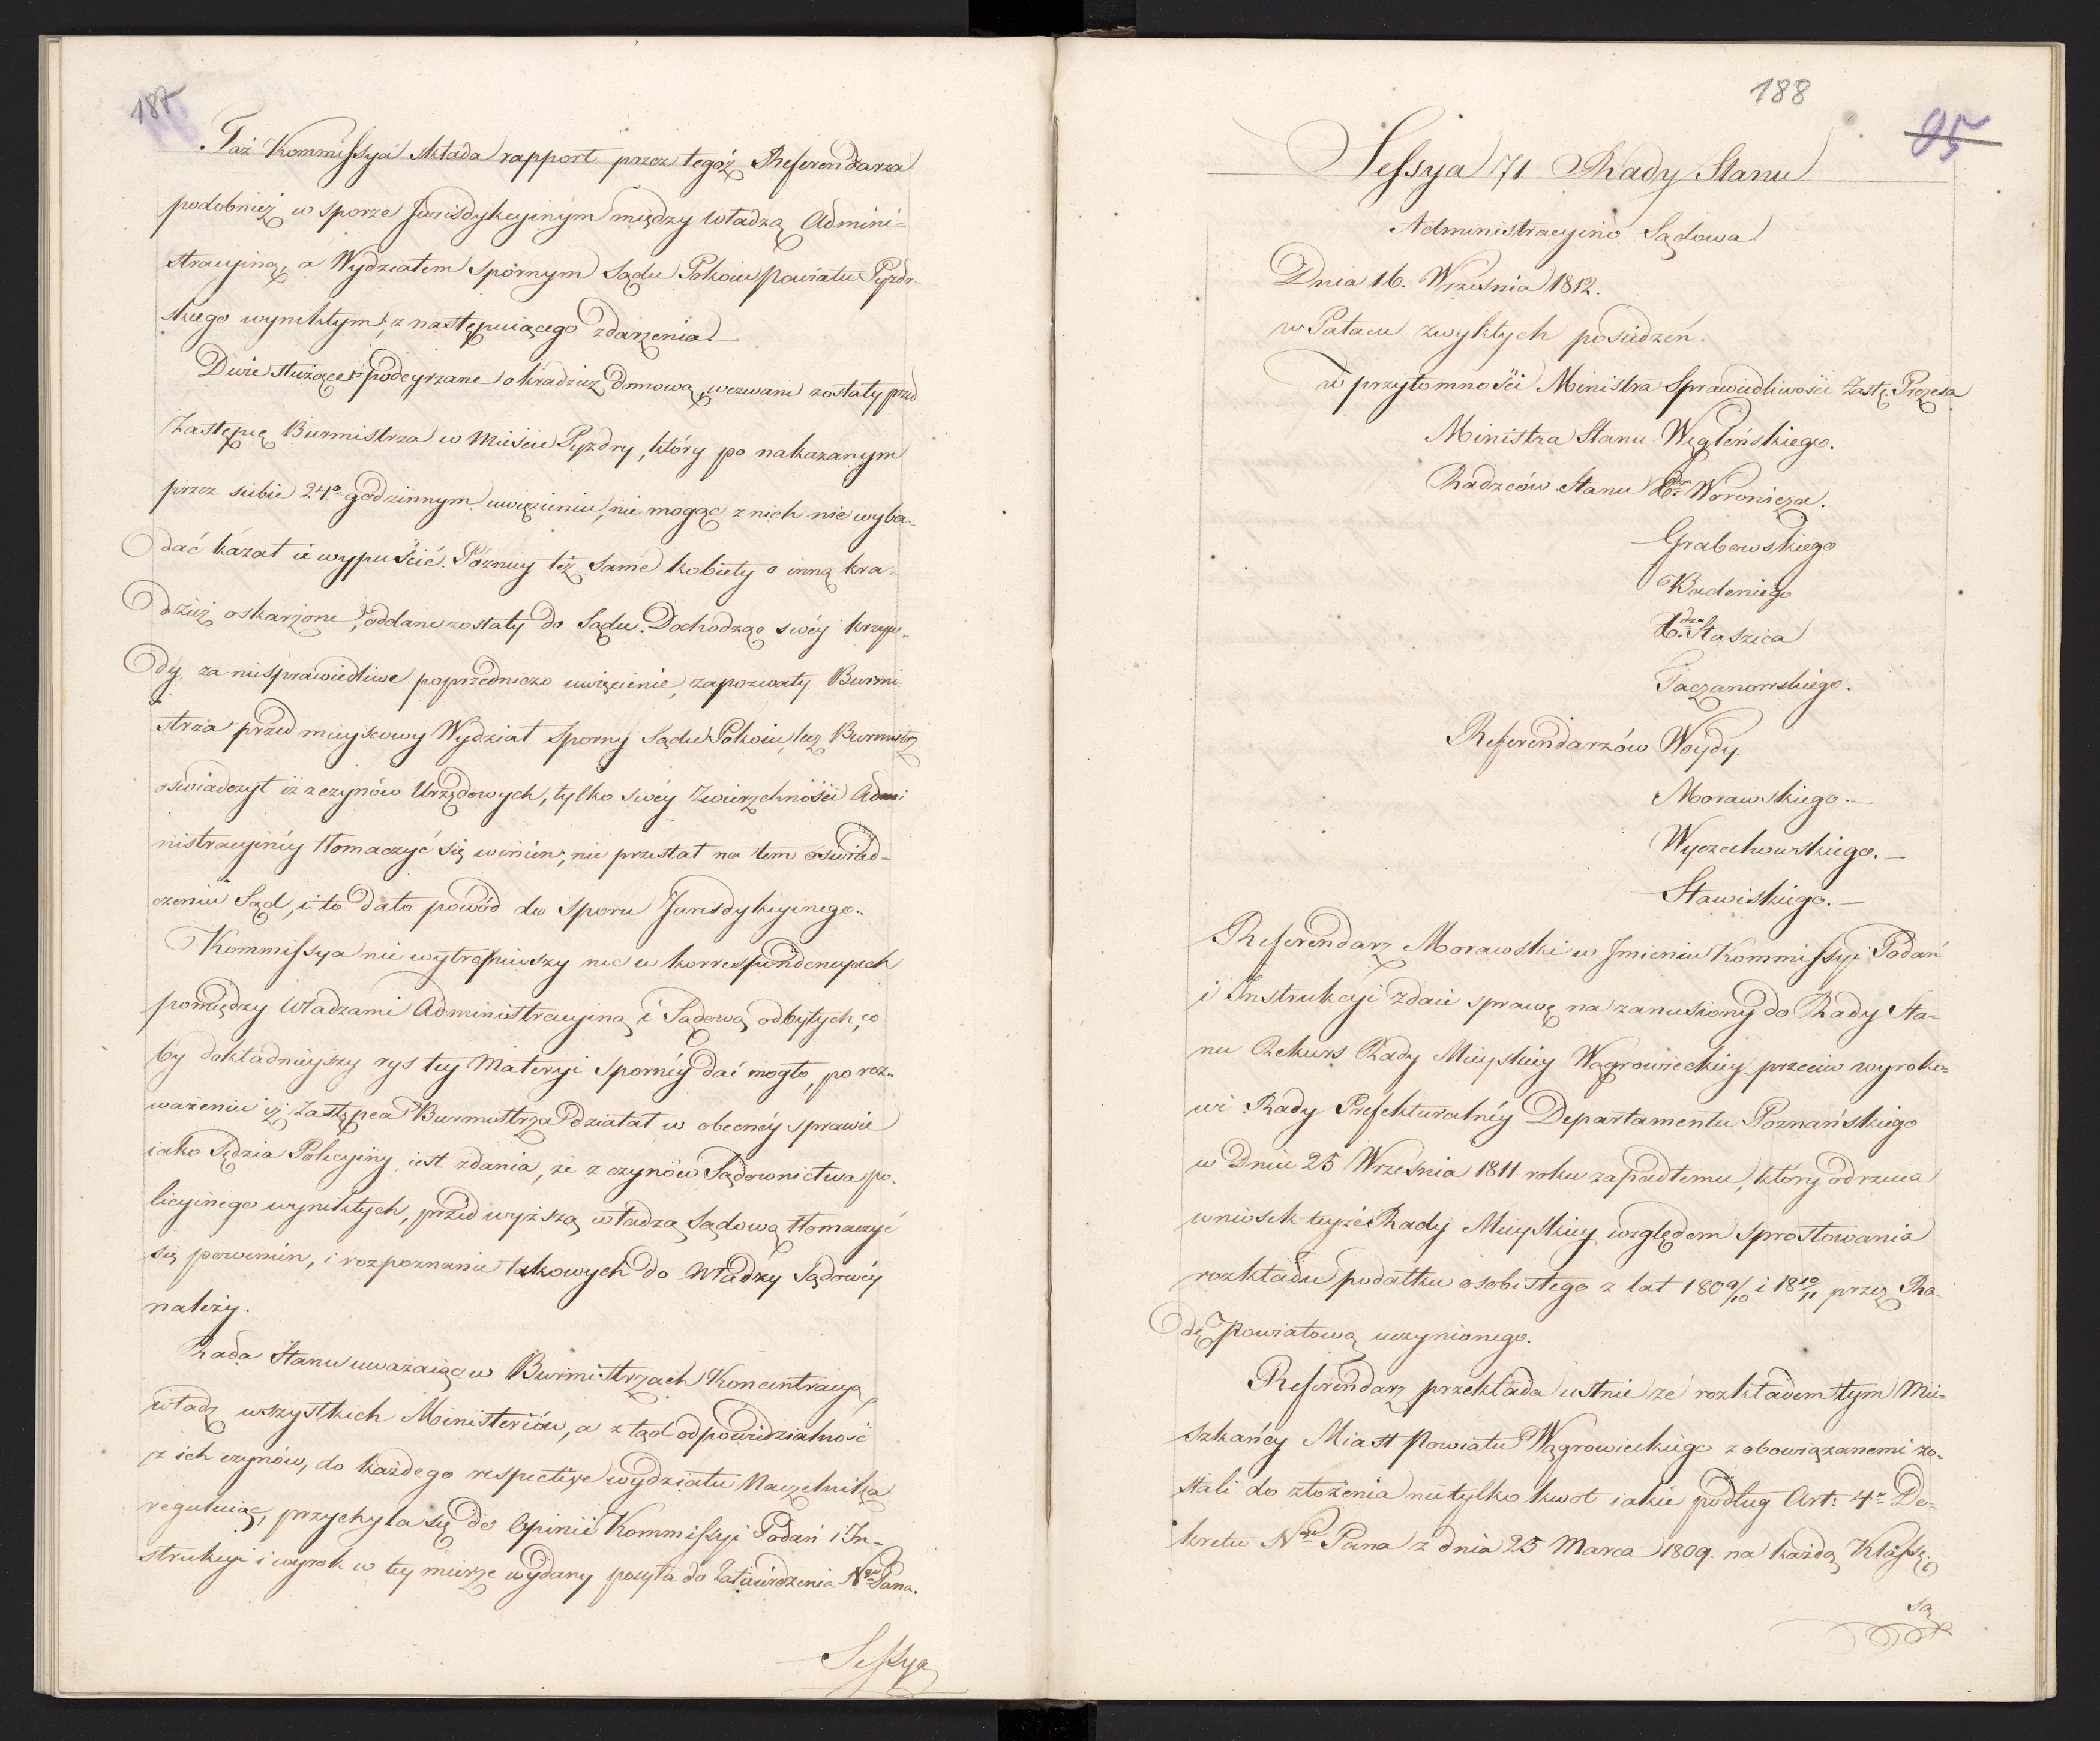 187
Taż Kommissya składa rapport przez tegoż Referendarza
podobnież w sporze Jurisdykcyinym między władzą Admini=
stracyiną, a Wydziałem Spornym Sądu Pokoiu Powiatu Pyzdr-
skiego wynikłym, z następuiącego zdarzenia
Dwie służące podeyrzane o kradzież domową, wezwane zostały przed
Zastępcę Burmistrza w Mieście Pyzdry, który po nakazanym
przez siebie 24º godzinnym uwięzieniu, nie mogąc z nich nic wyba-
dać kazał ie wypuścić. Pózniey też same kobiety o inną kra=
dzież oskarżone, oddane zostały do Sądu. Dochodząc swéy krzyw-
dy za niesprawiedliwe poprzedniczo uwięzienie, zapozwały Burmi-
strza przed mieyscowy Wydział Sporny Sądu Pokoiu, lecz Burmistrz
oswiadczył iż z czynów Urzędowych, tylko swéy Zwierzchności Admi
nistracyinéy tłomaczyć się winien; nie przestał na tem oswiad=
czeniu Sąd, i to dało powód do sporu Jurisdykcyinego..
Kommissya nie wytropiwszy nic w korrespondencyach
pomiędzy Władzami Administracyiną i Sądową odbytych, co
by dokładnieyszy rys tey Materyi Spornéy dać mogło, po roz-
ważeniu iż Zastępca Burmistrza działał w obecnéy sprawie
iako Sędzia Policyiny, iest zdania, że z czynów Sądownictwa po-
licyinego wynikłych, przed wyższą władzą Sądową tłomaczyć
się powinien, i rozpoznanie takowych do Władzy Sądowéy
należy.
Rada Stanu uważaiąc w Burmistrzach Koncentracyą
władz wszystkich Ministeriów, a ztąd odpowiedzialność
z ich czynów, do każdego respective wydziału Naczelnika
reguluiąc, przychyla się do Opinii Kommissyi Podań i In-
strukcyi i wyrok w tey mierze wydany posyła do Zatwierdzenia Ngo Pana.
Sessya
188
95
Sessya 71 Rady Stanu
Administracyino Sądowa
Dnia 16. Września 1812.
w Pałacu zwykłych posiedzeń.
w przytomności Ministra Sprawiedliwości Zastę. Prezesa
Ministra Stanu Węgleńskiego.
Radzców Stanu Xdza Woronicza.
Grabowskiego
Badeniego
Xdza Staszica
Gaczanowskiego.
Referendarzów Woydy.
Morawskiego.—
Wyczechowskiego.—
Sławiskiego.—
Referendarz Morawski w Jmieniu Kommissyi Podań
i Instrukcyi zdaie sprawę na zaniesiony do Rady Sta=
nu Rekurs Rady Mieyskiey Wągrowieckiey przeciw wyroko=
wi Rady Prefekturalnéy Departamentu Poznańskiego
w Dniu 25 Września 1811 roku zapadłemu, który odrzuca
wniosek teyże Rady Mieyskiey względem sprostowania
rozkładu podatku osobistego z lat 1809/10 i 1810/11 przez Ra-
dę Powiatową uczynionego.
Referendarz przekłada ustnie że rozkładem tym Mie=
szkańcy Miast Powiatu Wągrowieckiego zobowiązanemi zo-
stali do złożenia nietylko kwot iakie podług Art: 4º De-
kretu Ngo Pana z dnia 25 Marca 1809. na każdą Klassę
są